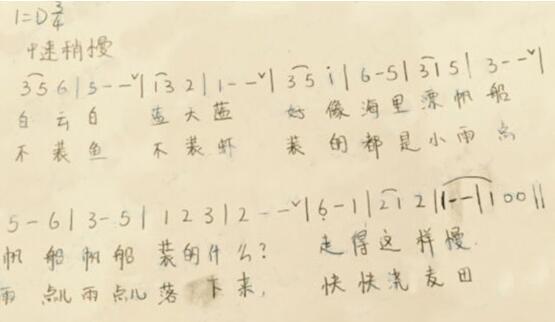 1=D 3/4
中速稍慢
3 5 6 | 5 - - ˅ | 1 3 2 | 1 - - ˅ | 3 5 i | 6 - 5 | 3 1 5 | 3 - - ˅ |
白 云 白 蓝 天 蓝 好 像 海 里 漂 帆 船
不 装 鱼 不 装 虾 装 的 都 是 小 雨 点
5 - 6 | 3 - 5 | 1 2 3 | 2 - - ˅ | 6 - 1 | 2 1 2 | 1 - - | 1 0 0 ||
帆 船 帆 船 装 的 什 么? 走 得 这 样 慢.
雨 点儿 雨 点儿 落 下 来, 快 快 浇 麦 田